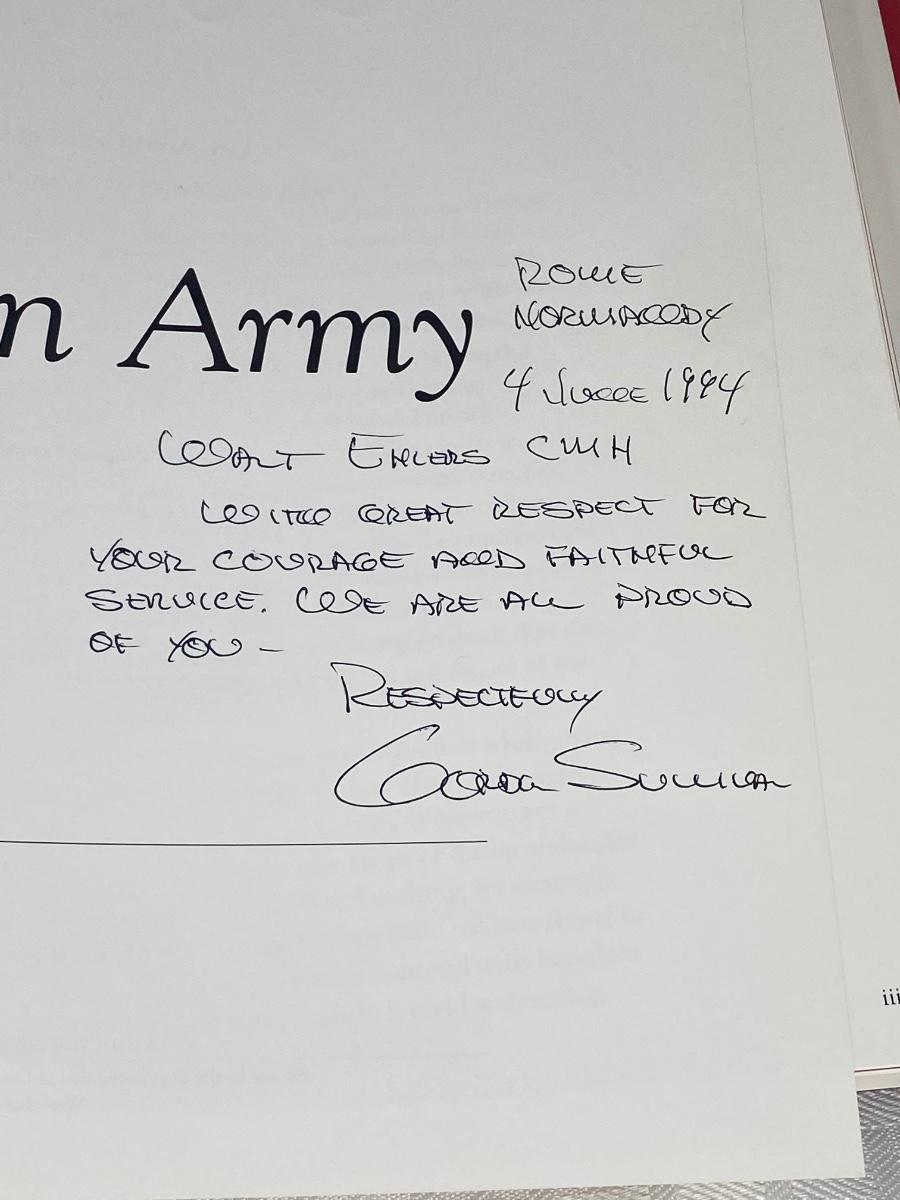 ROME
NORMANDY
n Army
4 JUNE 1994
WALT EHLERS CMH
WITH GREAT RESPECT FOR
YOUR COURAGE AND FAITHFUL
SERVICE. WE ARE ALL PROUD
OF YOU -
RESPECTFULLY
Gordon Sullivan
iii